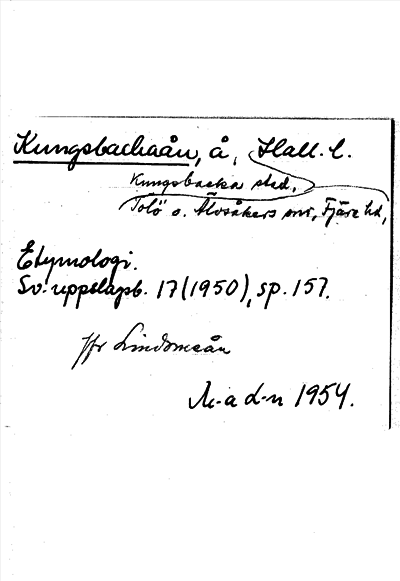 Kungsbackaån, å, Hall. l.
Kungsbacka stad,
Tölö o. Älvsåkers snr, Fjäre hd,
Etymologi.
Sv. uppslagsb. 17 (1950), sp. 157.
Jfr Lindomeån
M-a d-n 1954.